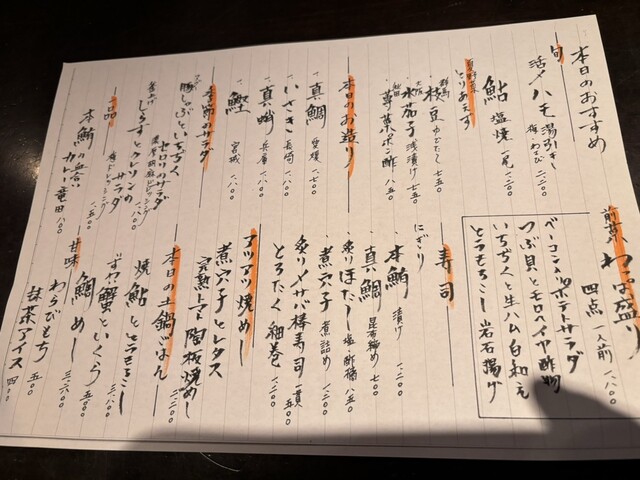 本日のおすすめ
旬
活〆ハモ湯引き 梅・わさび 二、二〇〇
鮎 塩焼 一尾 一、二〇〇
とりあえず
枝豆 ゆでたし 七五〇
水茄子 浅漬け 七五〇
蓴菜ポン酢 八五〇
本日のお造り
真鯛 愛媛 一、七〇〇
いさき 長崎 一、八〇〇
真蛸 兵庫 一、八〇〇
鰹 宮城 一、八〇〇
季節のサラダ
豚しゃぶといちぢく
セロリのサラダ
釜揚げ
しらすとクレソンの
サラダ
一品
本鮪の血合い
カレー竜田 一、五〇〇
前菜
わっぱ盛り
四点 一人前 一、八〇〇
ベーコンとポテトサラダ
つぶ貝とモロヘイヤ酢物
いちぢくと生ハム白和え
とうもろこし岩石揚げ
寿司
にぎり
本鮪 漬け 一、二〇〇
真鯛 昆布締め 七〇〇
炙りほたて 塩・酢橘 八五〇
煮穴子 煮詰め 一、二〇〇
炙りサバ棒寿司 一貫 五〇〇
とろたく細巻 一、二〇〇
アツアツ焼めし
煮穴子とレタス
完熟トマト陶板焼めし
本日の土鍋ごはん
焼鮎ととうもろこし
ずわい蟹といくら
鯛めし
甘味
わらびもち 五〇〇
抹茶アイス 四〇〇